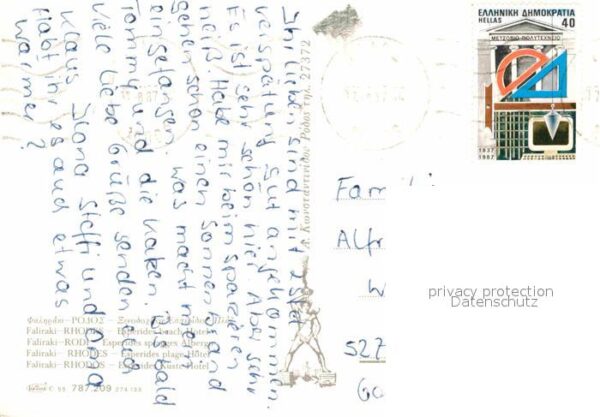 Ihr lieben sind mit 2 Std
verspätung gut angekommen.
Es ist sehr schön hier. Aber sehr
heiß Habe mir beim spazieren
gehen schon einen Sonnenbrand
eingefangen. was macht mein
Tommy und die Katzen. Bis bald
Viele liebe Grüße senden euch
Klaus Ilona Steffi und Tanja
Habt ihr es auch etwas
warmer?
ΕΛΛΗΝΙΚΗ ΔΗΜΟΚΡΑΤΙΑ
HELLAS 40
ΜΕΤΣΟΒΙΟ ΠΟΛΥΤΕΧΝΕΙΟ
1837
1987
Fam
Alfr
W
527
Go
privacy protection
Datenschutz
Φαληράκι-ΡΟΔΟΣ
Faliraki-RHODES - Esperides beach Hotel
Faliraki-RODI - Esperides spiaggia Albergo
Faliraki-RHODES - Esperides plage Hôtel
Faliraki-RHODOS - Esperides Küste Hotel
787.209
Α. Κωνσταντινίδου Ρόδος τηλ. 27372